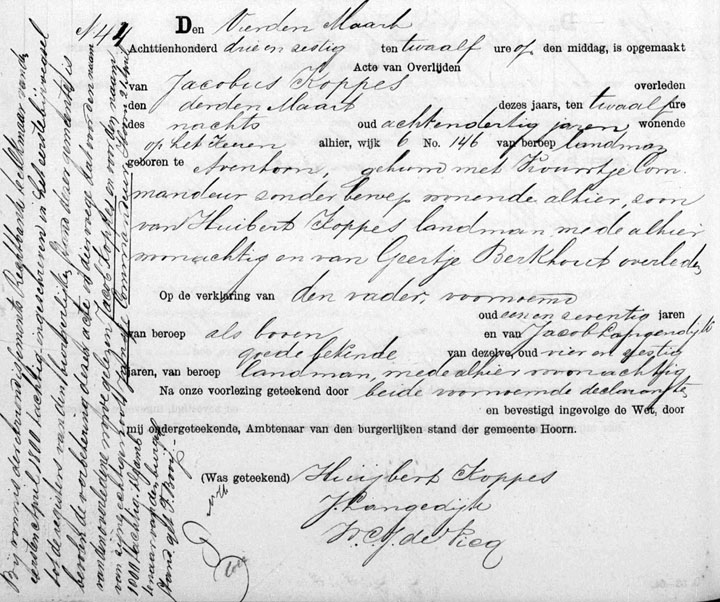 N 44
Den Vierden Maart
Achttienhonderd drie en sestig ten twaalf ure op den middag, is opgemaakt
Acte van Overlijden
van Jacobus Koppes overleden
den derden Maart dezes jaars, ten twaalf ure
des nachts oud achtendertig jaren wonende
op het Keern alhier, wijk 6 No. 146 van beroep landman
geboren te Avenhorn, gehuwd met Trijntje Com
mandeur sonder beroep wonende alhier, soon
van Huibert Koppes landman mede alhier
woonachtig en van Geertje Berkhout overleden
Op de verklaring van den vader, voornoemd
oud een en seventig jaren
van beroep als boven en van Jacob Langendijk
goede bekende van dezelve, oud vier en sestig
jaren, van beroep landman, mede alhier woonachtig
Na onze voorlezing geteekend door beide voornoemde declaranten
en bevestigd ingevolge de Wet, door
mij ondergeteekende, Ambtenaar van den burgerlijken stand der gemeente Hoorn.
(Was geteekend) Huijbert Koppes
J. Langedijk
By vonnis der Arrondissements Regtbank te Alkmaar van den
eersten april 1800 tachtig, ingeschreven in het
tot de registers van den burgerlijken stand dezer gemeente, is
bevolen de verbetering dezer acte
van den overledene moge gelezen Jacob Koppes en voor den naam
van zyne echtgenoote Commandeur Hoorn 21 april
1800 tachtig. De Ambt
tenaar van den burger
stand